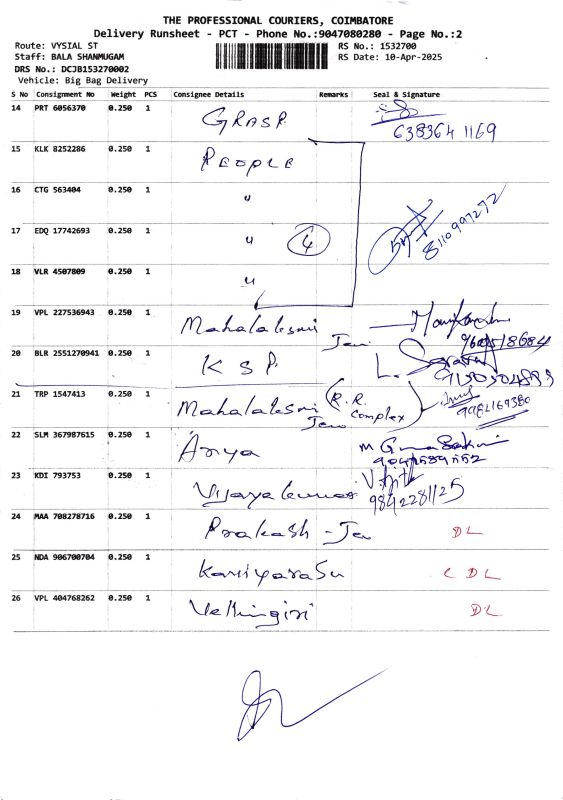 THE PROFESSIONAL COURIERS, COIMBATORE
Delivery Runsheet - PCT - Phone No.:9047080280 - Page No.:2
Route: VYSIAL ST
Staff: BALA SHANMUGAM
RS No.: 1532700
RS Date: 10-Apr-2025
DRS No.: DCJB153270002
Vehicle: Big Bag Delivery
S No Consignment No Weight PCS Consignee Details Remarks Seal & Signature
14 PRT 6056370 0.250 1 GRASP 6383641169
15 KLK 8252286 0.250 1 PEOPLE
16 CTG 563404 0.250 1 "
17 EDQ 17742693 0.250 1 " 4 8110997272
18 VLR 4507809 0.250 1 "
19 VPL 227536943 0.250 1 Mahalaksmi Jew
20 BLR 2551270941 0.250 1 K S P
21 TRP 1547413 0.250 1 Mahalaksmi Jew (R.R. Complex)
22 SLM 367987615 0.250 1 Ariya
23 KDI 793753 0.250 1 Vijayakumar 9842281125
24 MAA 708278716 0.250 1 Prakash - Jew DL
25 NDA 906700704 0.250 1 Kaniyarasu C DL
26 VPL 404768262 0.250 1 Vellingiri DL